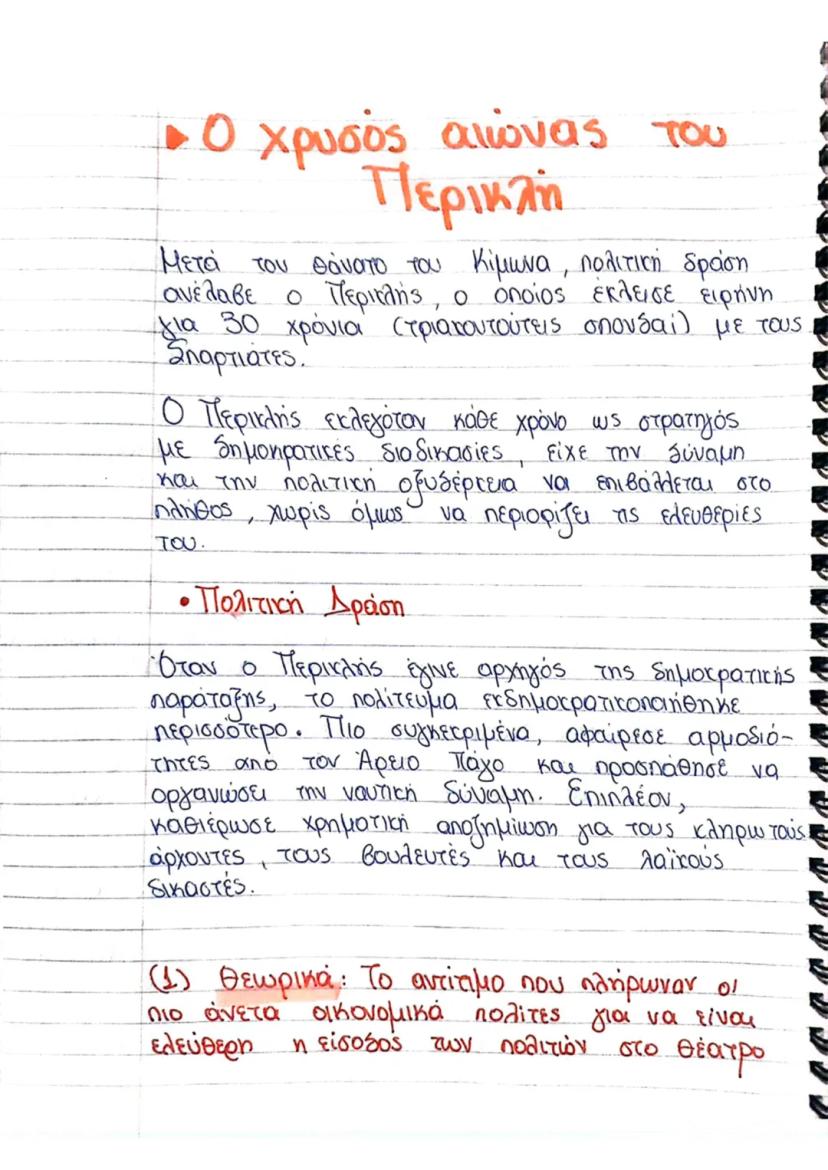 ▸ Ο χρυσός αιώνας του
Περικλή
Μετά τον θάνατο του Κίμωνα, πολιτική δράση
ανέλαβε ο Περικλής, ο οποίος έκλεισε ειρήνη
για 30 χρόνια (τριακοντούτεις σπονδαί) με τους
Σπαρτιάτες.
Ο Περικλής εκλεγόταν κάθε χρόνο ως στρατηγός
με δημοκρατικές διαδικασίες, είχε την δύναμη
και την πολιτική οξυδέρκεια να επιβάλλεται στο
πλήθος, χωρίς όμως να περιορίζει τις ελευθερίες
του.
• Πολιτική Δράση
Όταν ο Περικλής έγινε αρχηγός της δημοκρατικής
παράταξης, το πολίτευμα εκδημοκρατικοποιήθηκε
περισσότερο. Πιο συγκεκριμένα, αφαίρεσε αρμοδιό-
τητες από τον Άρειο Πάγο και προσπάθησε να
οργανώσει την ναυτική δύναμη. Επιπλέον,
καθιέρωσε χρηματική αποζημίωση για τους κληρωτούς
άρχοντες, τους βουλευτές και τους λαϊκούς
δικαστές.
(1) Θεωρικά: Το αντίτιμο που πλήρωναν οι
πιο άνετα οικονομικά πολίτες για να είναι
ελεύθερη η είσοδος των πολιτών στο θέατρο